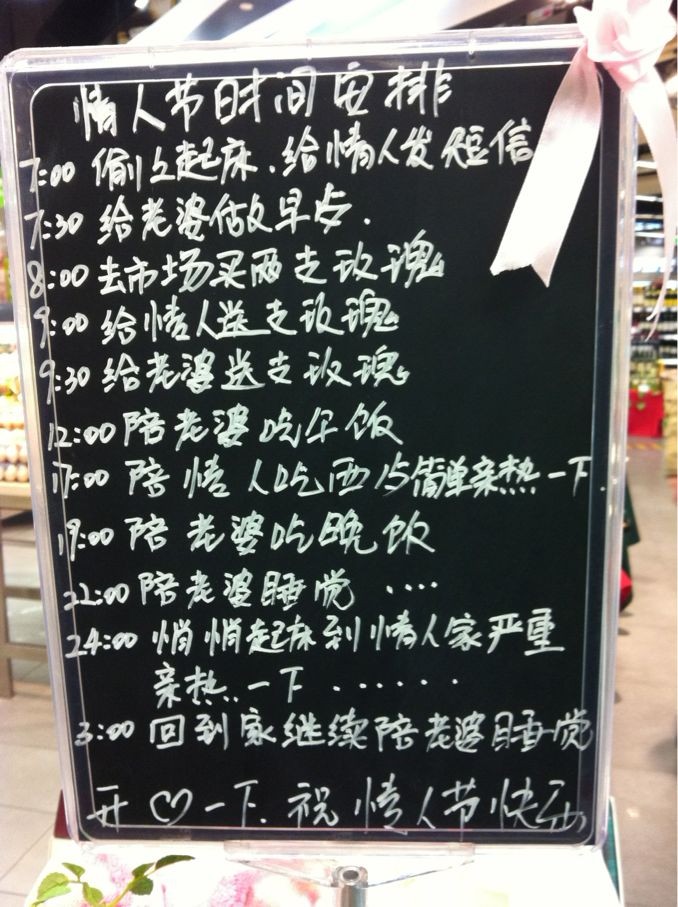 情人节时间安排
7:00 偷上起床、给情人发短信
7:30 给老婆做早点.
8:00 去市场买两支玫瑰
9:00 给情人送支玫瑰
9:30 给老婆送支玫瑰
12:00 陪老婆吃午饭
17:00 陪情人吃西点简单亲热一下.
19:00 陪老婆吃晚饭
22:00 陪老婆睡觉 ····
24:00 悄悄起床到情人家严重
亲热一下 ·······
3:00 回到家继续陪老婆睡觉
开♡一下. 祝情人节快乐